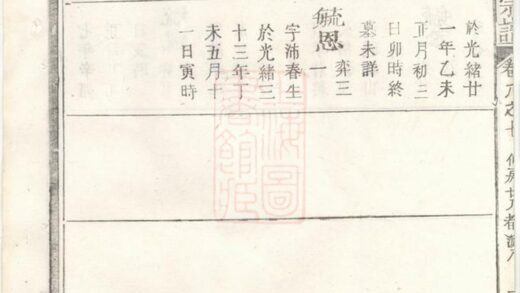 卷八之七
於光緒廿
一年乙未
正月初三
日卯時終
墓未詳
毓恩 弈三
一
字沛春生
於光緒三
十三年丁
未五月十
一日寅時
上海圖
書館藏